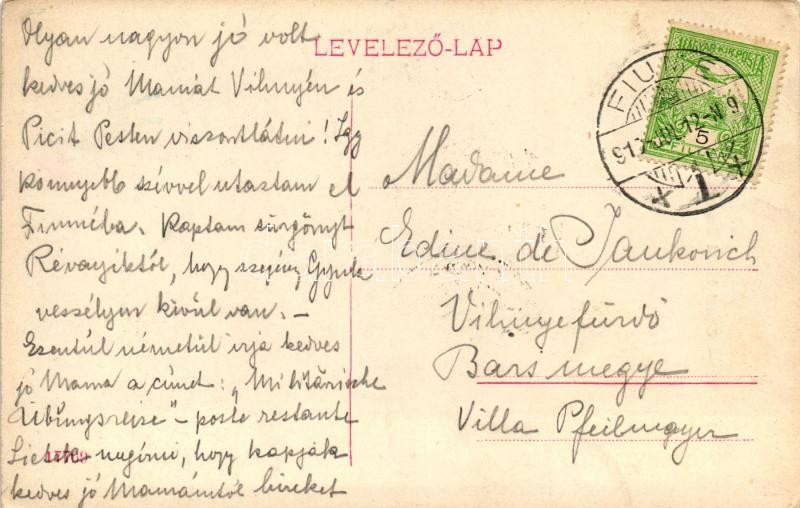 LEVELEZŐ-LAP
Olyan nagyon jó volt
kedves jó Mamát Vihnyén és
Picit Pesten viszontlátni! Így
könnyebb szívvel utaztam el
Fiuméba. Kaptam sürgönyt
Révayiktól, hogy szegény Gyula
veszélyen kívül van. –
Ezentúl németül írja kedves
jó Mama a címet: „Militärische
Übungsreise" – poste restante
hogy kapják
kedves jó Mamámtól híreket
Madame
Edine de Jankovich
Vihnyefürdő
Bars megye
Villa Pfeilmayer
MAGYAR KIR. POSTA
5
FIUME